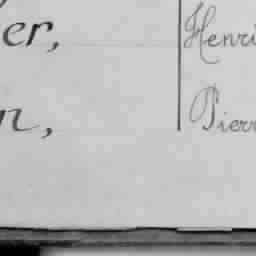 er, Henri
n, Pierr